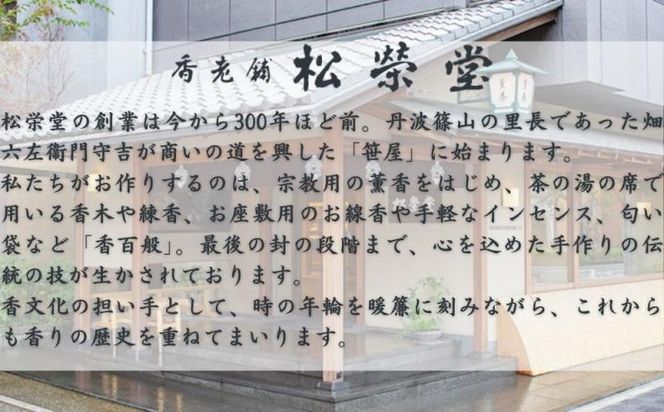 香老舗 松榮堂
松栄堂の創業は今から300年ほど前。丹波篠山の里長であった畑
六左衛門守吉が商いの道を興した「笹屋」に始まります。
私たちがお作りするのは、宗教用の薫香をはじめ、茶の湯の席で
用いる香木や練香、お座敷用のお線香や手軽なインセンス、匂い
袋など「香百般」。最後の封の段階まで、心を込めた手作りの伝
統の技が生かされております。
香文化の担い手として、時の年輪を暖簾に刻みながら、これから
も香りの歴史を重ねてまいります。